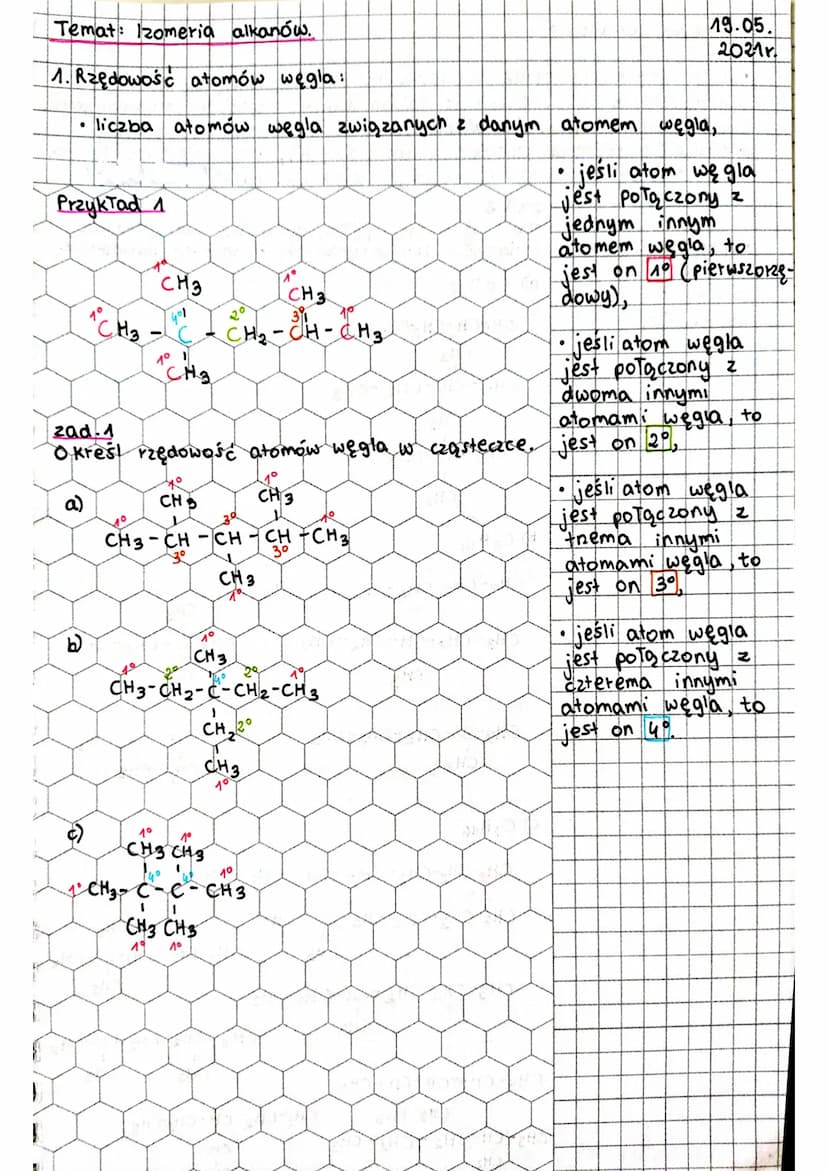 Temat: Izomeria alkanów.
19.05.
2021r.
1. Rzędowość atomów węgla:
• liczba atomów węgla związanych z danym atomem węgla,
• jeśli atom węgla
jest połączony z
jednym innym
atomem węgla, to
jest on 1° (pierwszorzę-
dowy),
• jeśli atom węgla
jest połączony z
dwoma innymi
atomami węgla, to
jest on 2°,
• jeśli atom węgla
jest połączony z
trzema innymi
atomami węgla, to
jest on 3°,
• jeśli atom węgla
jest połączony z
czterema innymi
atomami węgla, to
jest on 4°.
Przykład 1
1° 1°
CH3 CH3
1° 4° 2° 3° 1°
CH3 - C - CH2 - CH - CH3
1°
CH3
zad. 1
Określ rzędowość atomów węgla w cząsteczce.
a)
1° 1°
CH3 CH3
1° 3° 1°
CH3 - CH - CH - CH - CH3
3° 3°
CH3
1°
b)
1°
CH3
1° 2° 4° 2° 1°
CH3-CH2-C-CH2-CH3
CH2 2°
CH3
1°
c)
1° 1°
CH3 CH3
4° 4° 1°
1° CH3- C - C - CH3
CH3 CH3
1° 1°